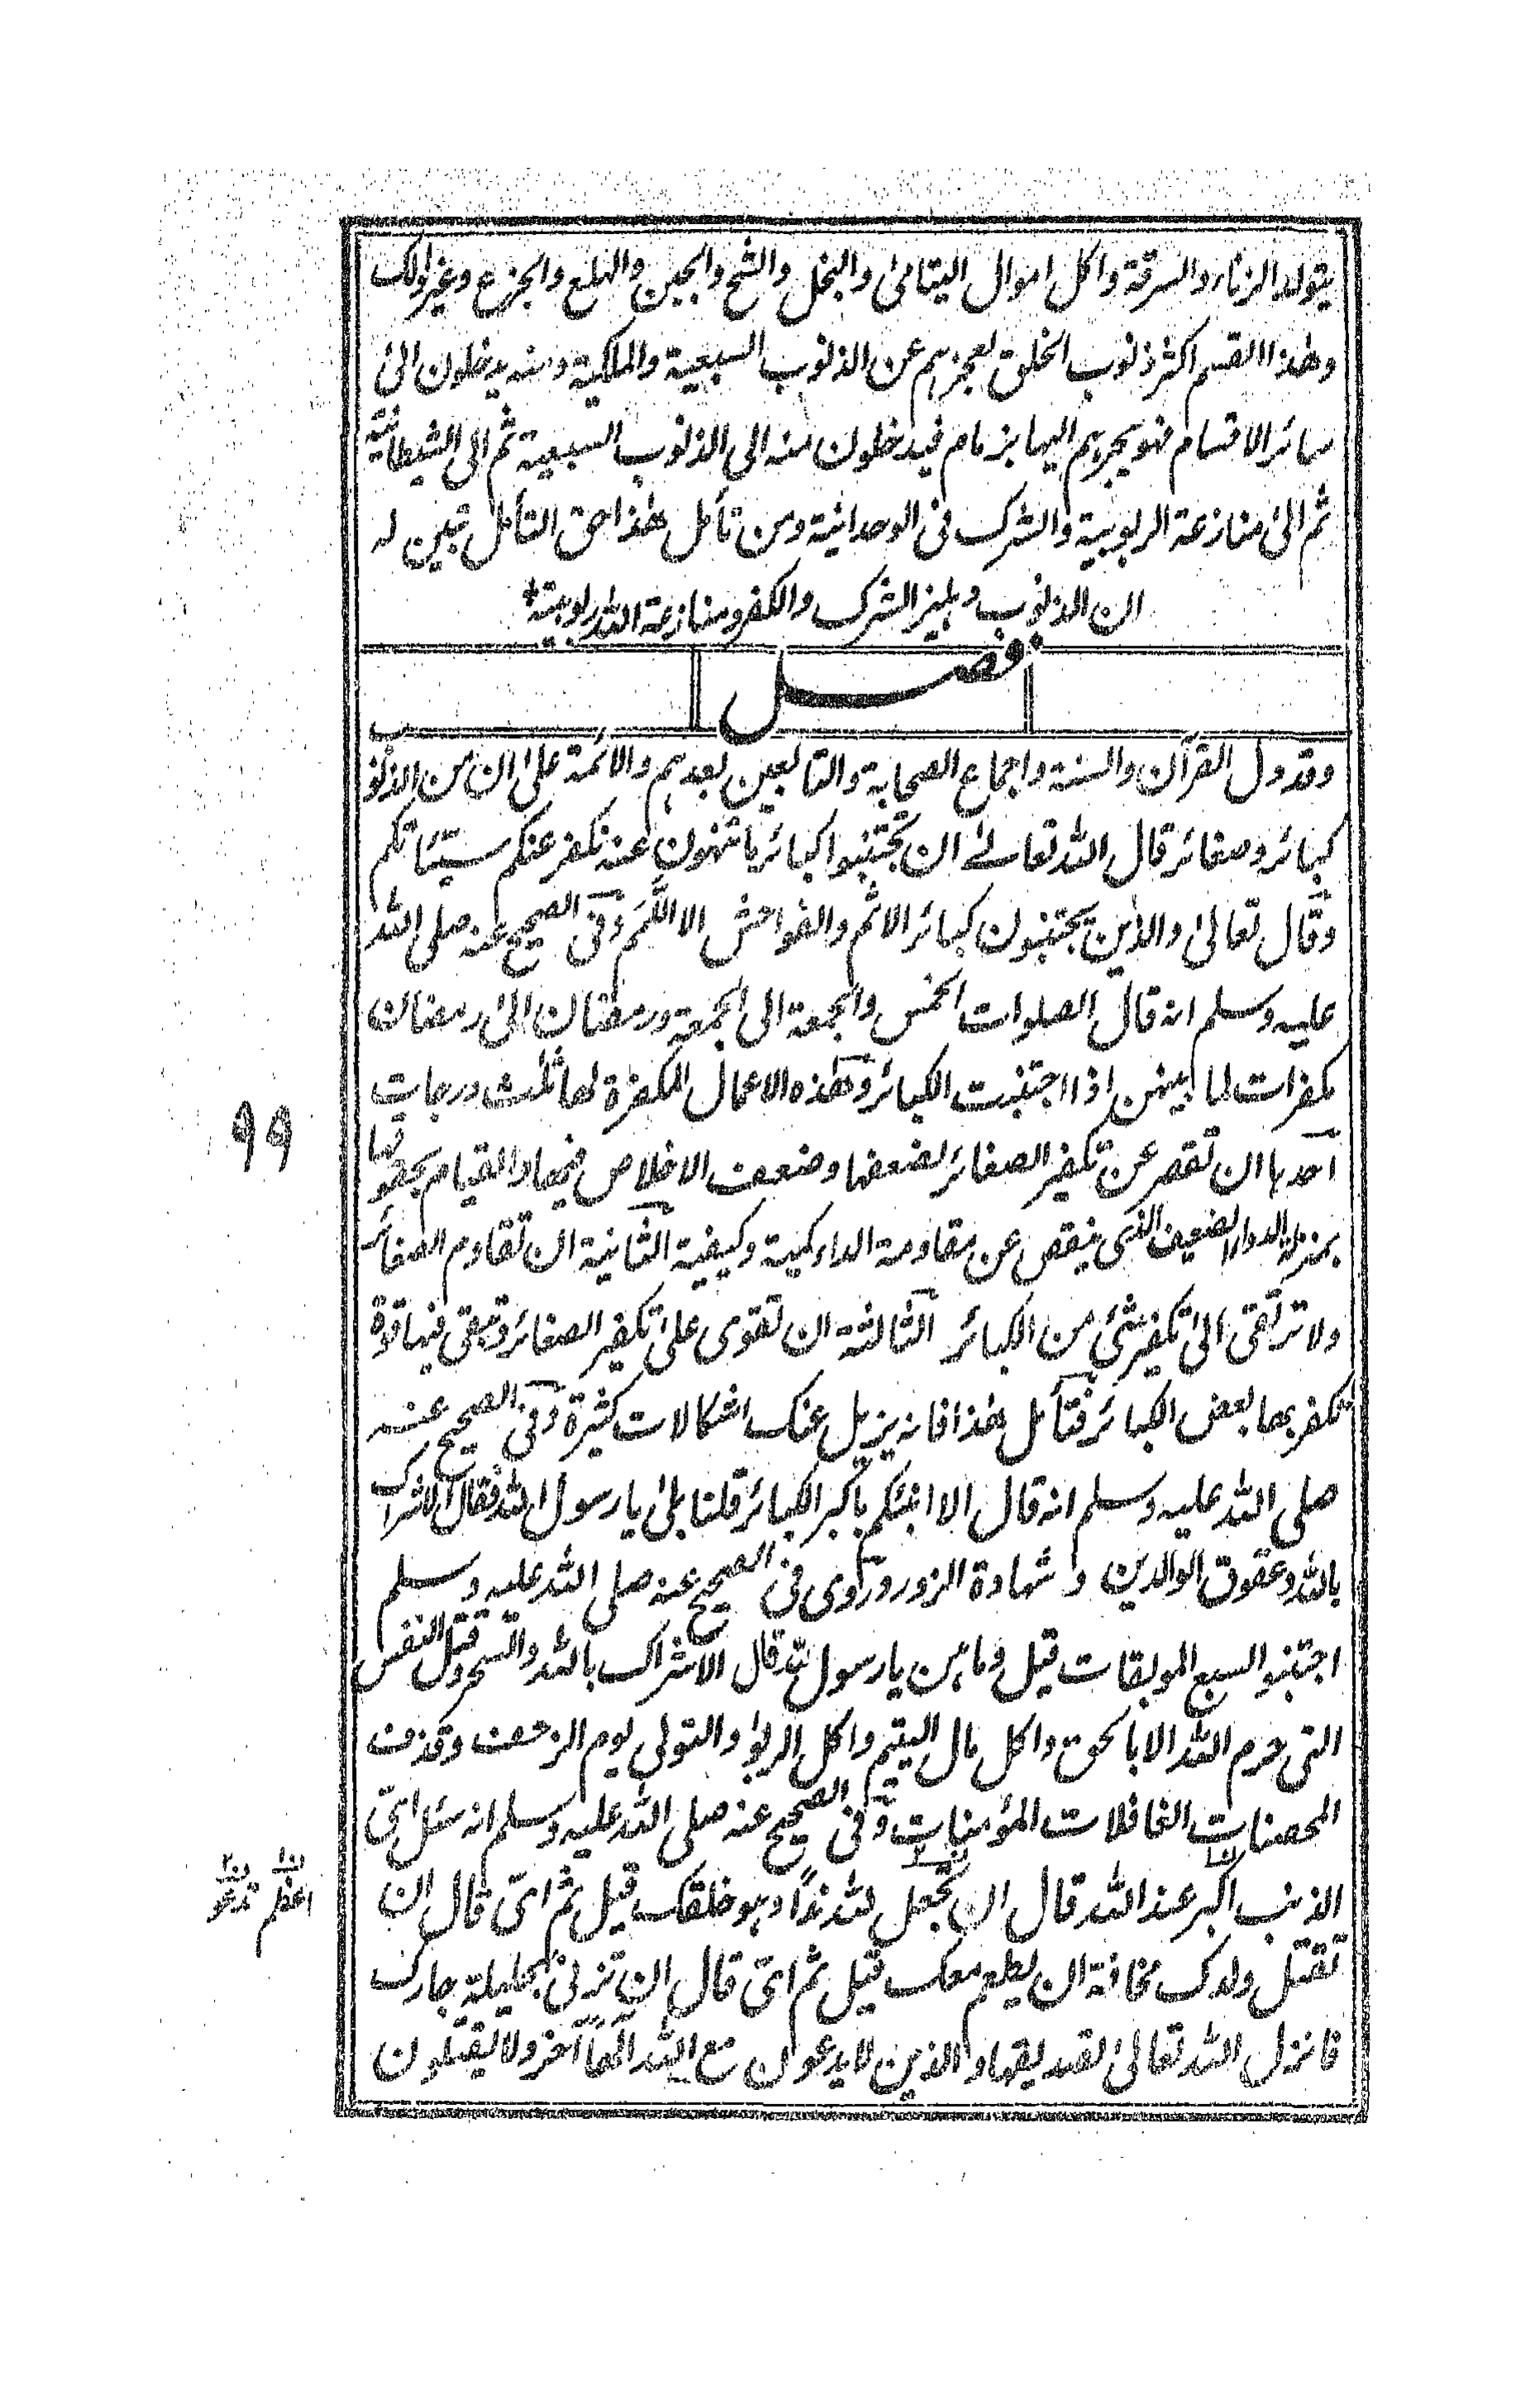 يتولد الزناء والسرقة واكل اموال اليتامى والبخل والشح والجبن والهلع والجزع وغير ذلك
وهذا القسم اكثر ذنوب الخلق لعجزهم عن الذنوب السبعية والملكية ومنه يدخلون الى
سائر الاقسام فهو يجرهم اليها بزمام فيدخلون منه الى الذنوب السبعية ثم الى الشيطانية
ثم الى منازعة الربوبية والشرك فى الوحدانية ومن تأمل هذا حق التأمل تبين له
ان الذنوب دهليز الشرك والكفر ومنازعة الله ربوبيته
فصل
وقد دل القرآن والسنة واجماع الصحابة والتابعين بعدهم والائمة على ان من الذنوب
كبائر وصغائر قال الله تعالى ان تجتنبوا كبائر ما تنهون عنه نكفر عنكم سيئاتكم
وقال تعالى والذين يجتنبون كبائر الاثم والفواحش الا اللمم وفى الصحيح عنه صلى الله
عليه وسلم انه قال الصلوات الخمس والجمعة الى الجمعة ورمضان الى رمضان
مكفرات لما بينهن اذا اجتنبت الكبائر وهذه الاعمال المكفرة لها ثلث درجات
احدها ان تقصر عن تكفير الصغائر لضعفها وضعف الاخلاص فيها والقيام بحقوقها
بمنزلة الدواء الضعيف الذى ينقص عن مقاومة الداء كمية وكيفية الثانية ان تقاوم الصغائر
ولا ترتقى الى تكفير شئ من الكبائر الثالثة ان تقوى على تكفير الصغائر وتبقى فيها قوة
تكفر بها بعض الكبائر فتأمل هذا فانه يزيل عنك اشكالات كثيرة وفى الصحيح عنه
صلى الله عليه وسلم انه قال الا انبئكم باكبر الكبائر قلنا بلى يا رسول الله فقال الاشراك
بالله وعقوق الوالدين و شهادة الزور وروى فى الصحيح عنه صلى الله عليه وسلم
اجتنبوا السبع الموبقات قيل وما هن يا رسول لله قال الاشراك بالله والسحر وقتل النفس
التى حرم الله الا بالحق واكل مال اليتيم واكل الربوا والتولى يوم الزحف وقذف
المحصنات الغافلات المؤمنات وفى الصحيح عنه صلى الله عليه وسلم انه سئل اىّ
الذنب اكبر عند الله قال ان تجعل لله ندًا وهو خلقك قيل ثم اىّ قال ان
تقتل ولدك مخافة ان يطعم معك قيل ثم اىّ قال ان تزنى بحليلة جارك
فانزل الله تعالى تصديقها والذين لا يدعون مع الله الٰهًا آخر ولا يقتلون
٩٩
اعظم تدعو